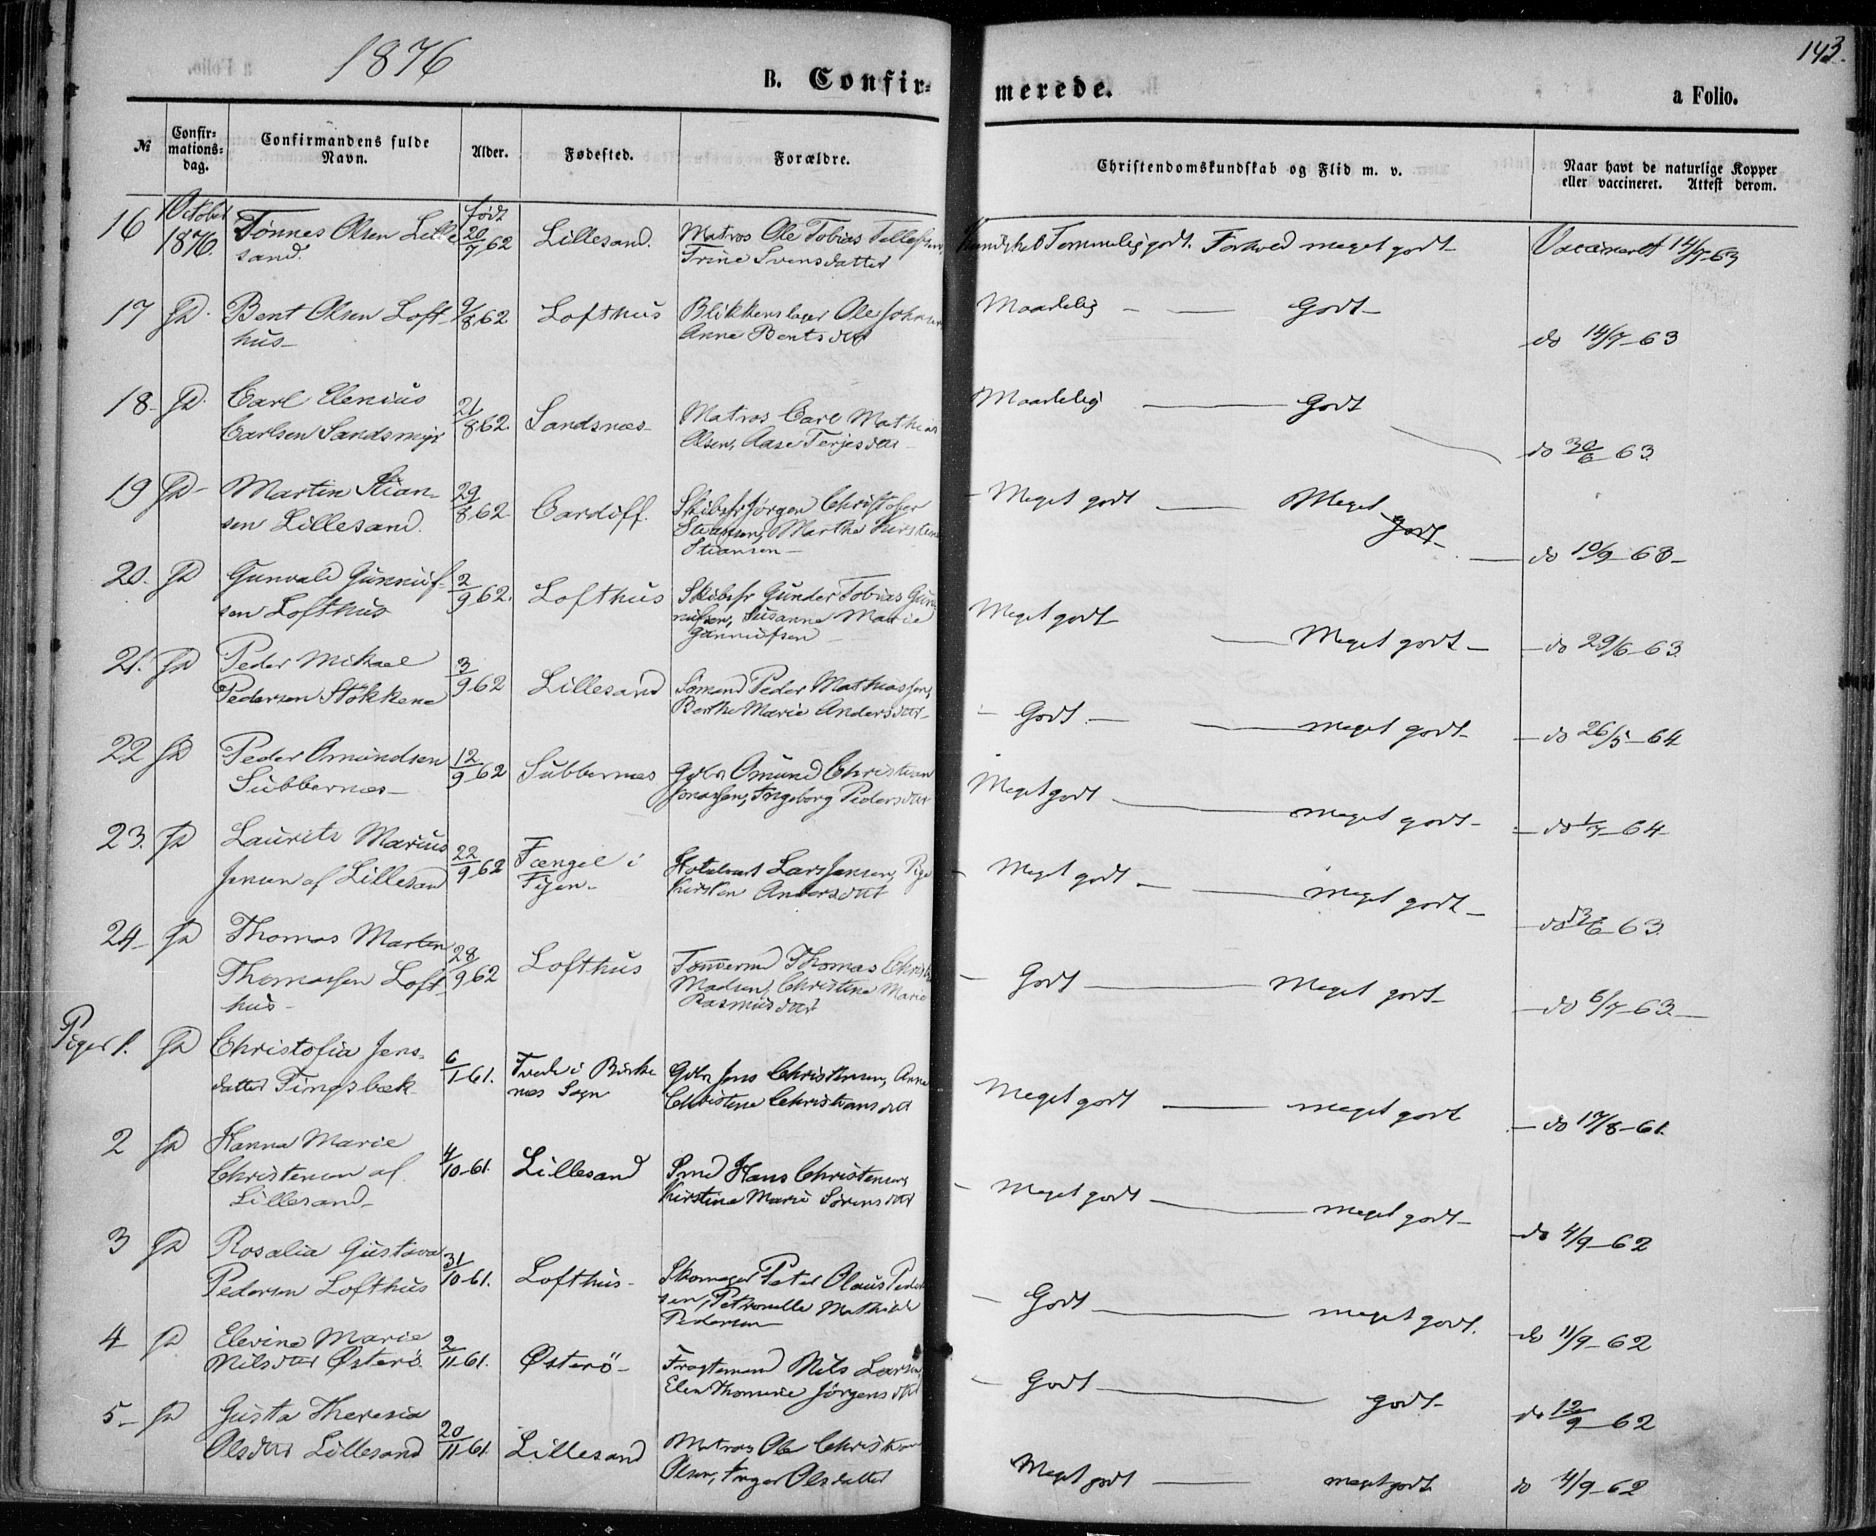 1876
143.
B. Confir-
merede.
a Folio.
№
Confir-
mations-
dag.
Confirmandens fulde
Navn.
Alder.
Fødested.
Forældre.
Christendomskundskab og Flid m. v.
Naar havt de naturlige Kopper
eller vaccineret. Attest derom.
16 October 1876. Tønnes Olsen Lille født 20/7 62 Lillesand. Matros Ole Tobias Tellefsen, Kundskab Temmelig godt. Forhold meget godt Vaccineret 14/7 63
sand. Trine Svensdatter
17 Bent Olsen Loft- 9/8 62 Lofthus Blikkenslager Ole Johansen Maadelig — Godt do 14/7-63
hus Anne Bentsdatt
18 Carl Elenius 21/8 62 Sandsnæs Matros Carl Mathias Maadelig — Godt do 30/6 63
Carlsen Sandsmyr Olsen, Aase Terjesdatt
19 Martin Stian- 29/8 62 Cardiff. Skibsfr Jørgen Christofer Meget godt — Meget godt do 10/9-63
sen Lillesand. Stiansen, Marthe Kirstine
Stiansen
20. Gunvald Gunnuf- 2/9 62. Lofthus Skibsfr Gunder Tobias Gun Meget godt — Meget godt do 29/6-63
sen Lofthus nufsen, Susanne Marie
Gunnufsen
21. Peder Mikael 3/9 62 Lillesand Sömand Peder Mathiassen, Godt — meget godt do 26/5-64
Pedersen Stökkene Berthe Marie Andersdatt
22 Peder Omundsen 12/9 62 Subbernæs Gdbr Omund Christian Meget godt — meget godt do 1/7-64
Subbernæs Jonassen, Ingeborg Pedersdatt
23. Laurits Marius 22/9 62 Fængel i Lars Jensen, Pige Meget godt — meget godt do 63
Jensen af Lillesand Fyen Kirsten Andersdatt
24 Thomas Martin 28/9 62 Lofthus Tømmermd Thomas Christ Godt — Meget godt do 6/7-63
Thomassen Loft- Madsen, Christine Marie
hus Rasmusdatt
Piger 1. Christofia Jens- 6/1 61. Tvede i Birke Gdbr Jens Christensen, Anne Meget godt — meget godt do 17/8-61.
datter Tingsbæk næs Sogn Christine Christiansdatt
2 Hanna Marie 4/10-61. Lillesand Smed Hans Christensen, Meget godt — meget godt do 4/9-62
Christensen af Kirstine Marie Sörensdatt
Lillesand
3 Rosalia Gustava 31/10-61. Lofthus Skomager Peter Olaus Peder Godt — meget godt. do 11/9-62
Pedersen Lofthus sen, Petronelle Mathilde
Pedersen
4 Elevine Marie 2/11-61. Østerö Fragtemand Nils Larsen, Godt — godt do 12/9-62
Nilsdatt Østerö. Elen Thomine Jörgensdatt
5 Gusta Theresia 20/11-61. Lillesand Matros Ole Christian Meget godt — meget godt do 4/9-62
Olsdatt Lillesand Olsen, Inger Olsdatter